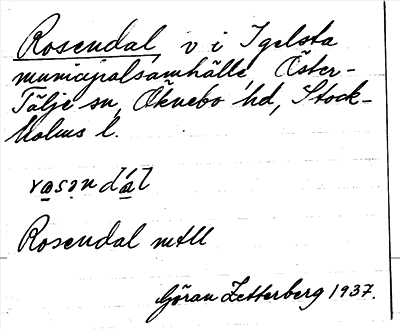 Rosendal, v i Igelsta
municipalsamhälle, Öster-
Tälje sn, Öknebo hd, Stock-
holms l.
rosəndál
Rosendal mtll
Göran Zetterberg 1937.